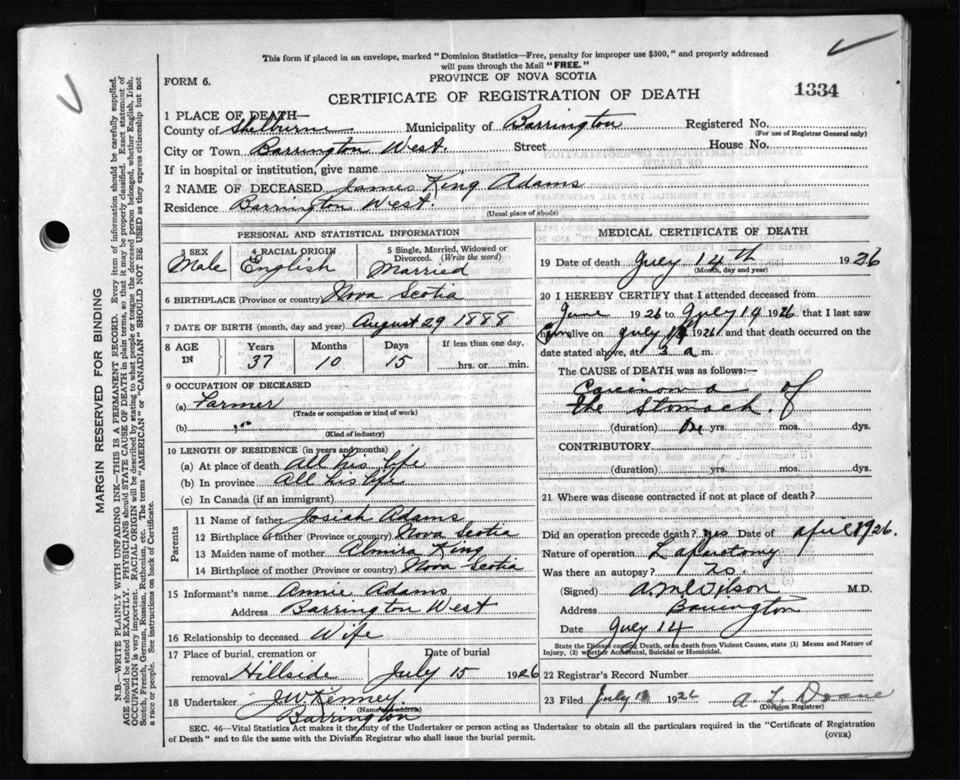 This form if placed in an envelope, marked "Dominion Statistics—Free, penalty for improper use $300," and properly addressed
will pass through the Mail "FREE."
FORM 6.
PROVINCE OF NOVA SCOTIA
CERTIFICATE OF REGISTRATION OF DEATH
1334
1 PLACE OF DEATH—
County of Shelburne Municipality of Barrington Registered No.
(For use of Registrar General only)
City or Town Barrington West. Street House No.
If in hospital or institution, give name
2 NAME OF DECEASED James King Adams
Residence Barrington West.
(Usual place of abode)
PERSONAL AND STATISTICAL INFORMATION
3 SEX 4 RACIAL ORIGIN 5 Single, Married, Widowed or
Divorced. (Write the word)
Male English Married
6 BIRTHPLACE (Province or country) Nova Scotia
7 DATE OF BIRTH (month, day and year) August 29 1888
8 AGE IN Years Months Days If less than one day,
37 10 15 hrs. or min.
9 OCCUPATION OF DECEASED
(a) Farmer
(Trade or occupation or kind of work)
(b)
(Kind of industry)
10 LENGTH OF RESIDENCE (in years and months)
(a) At place of death All his life
(b) In province All his life
(c) In Canada (if an immigrant)
Parents
11 Name of father Josiah Adams
12 Birthplace of father (Province or country) Nova Scotia
13 Maiden name of mother Almira King
14 Birthplace of mother (Province or country) Nova Scotia
15 Informant's name Annie Adams
Address Barrington West
16 Relationship to deceased Wife
17 Place of burial, cremation or Date of burial
removal Hillside July 15 1926
18 Undertaker J W Kenney
(Name and address)
Barrington
MEDICAL CERTIFICATE OF DEATH
19 Date of death July 14th 1926
(Month, day and year)
20 I HEREBY CERTIFY that I attended deceased from
June 1926 to July 14 1926, that I last saw
him alive on July 1926 and that death occurred on the
date stated above, at 3 a m.
The CAUSE of DEATH was as follows:—
Carcinoma of
the Stomach.
(duration) yrs. mos. dys.
CONTRIBUTORY
(duration) yrs. mos. dys.
21 Where was disease contracted if not at place of death?
Did an operation precede death? yes Date of April 1926.
Nature of operation Laparotomy
Was there an autopsy? No.
(Signed) A. M. Wilson M.D.
Address Barrington
Date July 14
State the Disease causing Death, or in death from Violent Causes, state (1) Means and Nature of
Injury, (2) whether Accidental, Suicidal or Homicidal.
22 Registrar's Record Number
23 Filed July 1926 A. L. Doane
(Division Registrar)
SEC. 46—Vital Statistics Act makes it the duty of the Undertaker or person acting as Undertaker to obtain all the particulars required in the "Certificate of Registration
of Death" and to file the same with the Division Registrar who shall issue the burial permit.
(OVER)
MARGIN RESERVED FOR BINDING
N.B.—WRITE PLAINLY WITH UNFADING INK—THIS IS A PERMANENT RECORD. Every item of information should be carefully supplied.
AGE should be stated EXACTLY. PHYSICIANS should STATE CAUSE OF DEATH in plain terms, so that it may be properly classified. Exact statement of
OCCUPATION is very important. RACIAL ORIGIN will be described by stating to what people or tongue the deceased person belonged, whether English, Irish,
Scotch, French, German, Russian, Ruthenian, etc. The terms "AMERICAN" or "CANADIAN" SHOULD NOT BE USED as they express citizenship but not
a race or people. See instructions on back of Certificate.